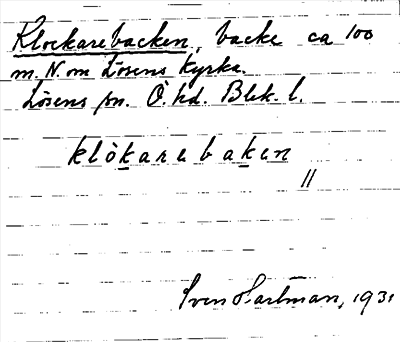 Klockarebacken, backe ca 100
m. N. om Lösens Kyrka.
Lösens sn. Ö. hd. Blek. l.
klòkarebaken
//
Sven Hartman, 1931